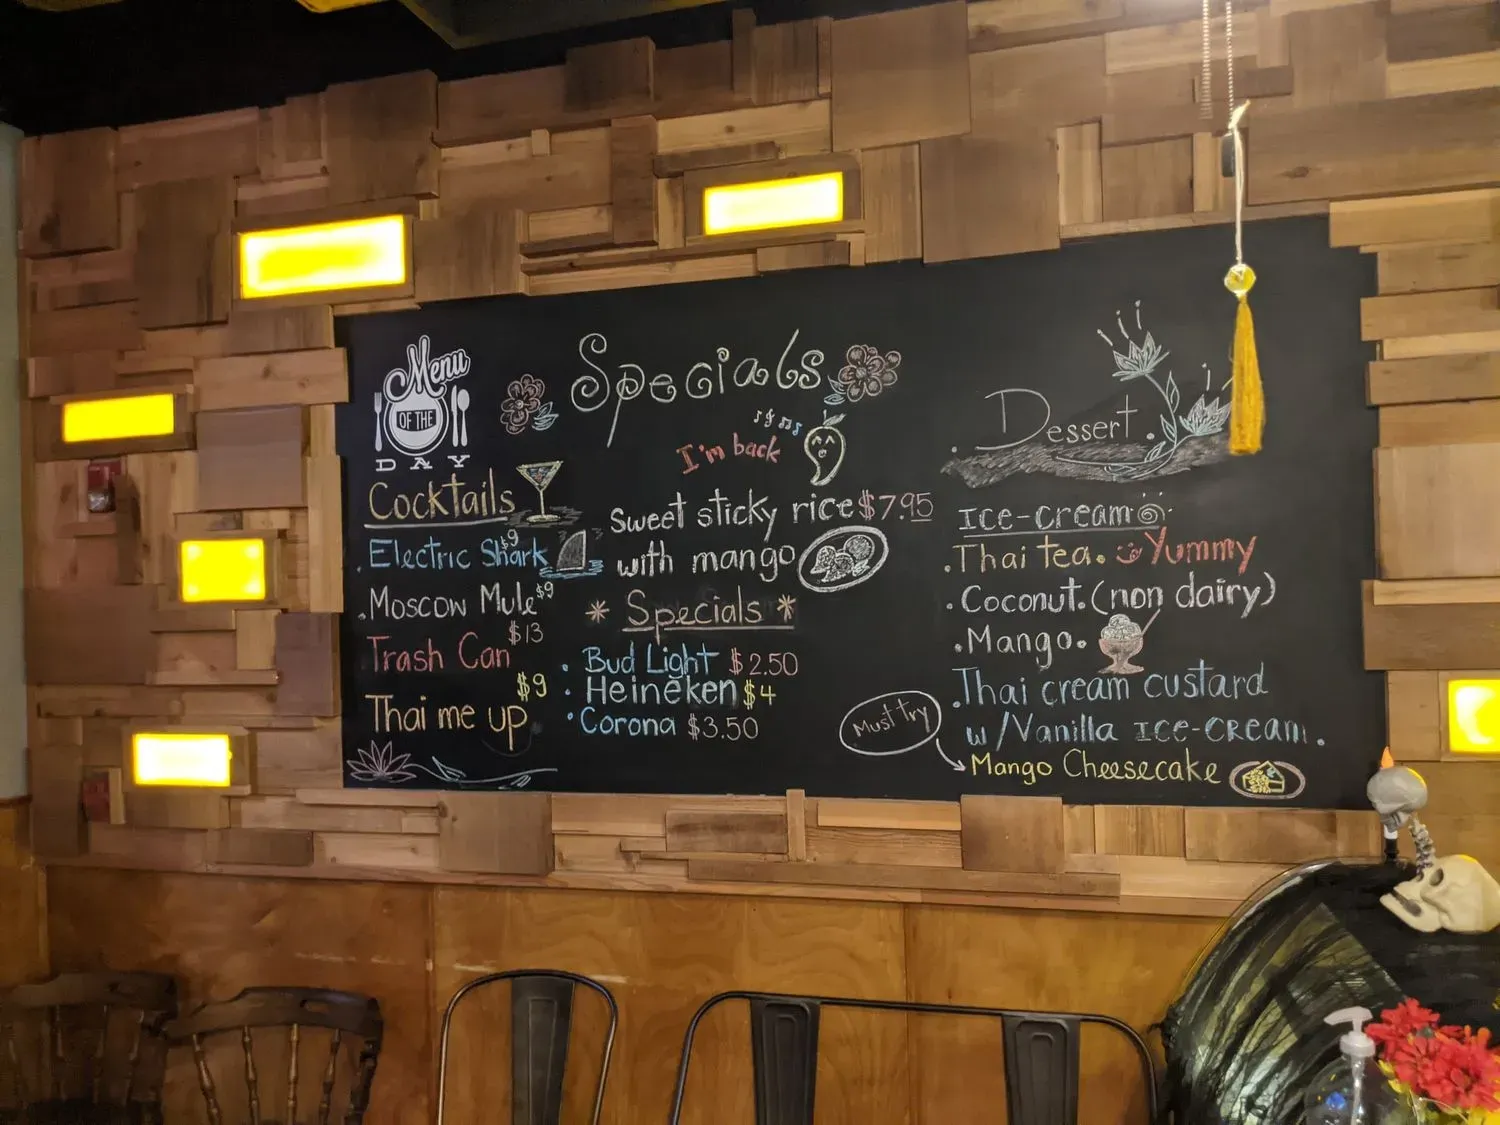 Menu
OF THE
DAY
Cocktails
. Electric Shark $9
. Moscow Mule $9
Trash Can $13
Thai me up $9
Specials
I'm back
Sweet sticky rice $7.95
with mango
* Specials *
. Bud Light $2.50
. Heineken $4
. Corona $3.50
. Dessert .
Ice-cream
. Thai tea. Yummy
. Coconut. (non dairy)
. Mango.
. Thai cream custard
w/Vanilla ICE-CREAM.
Must try
Mango Cheesecake